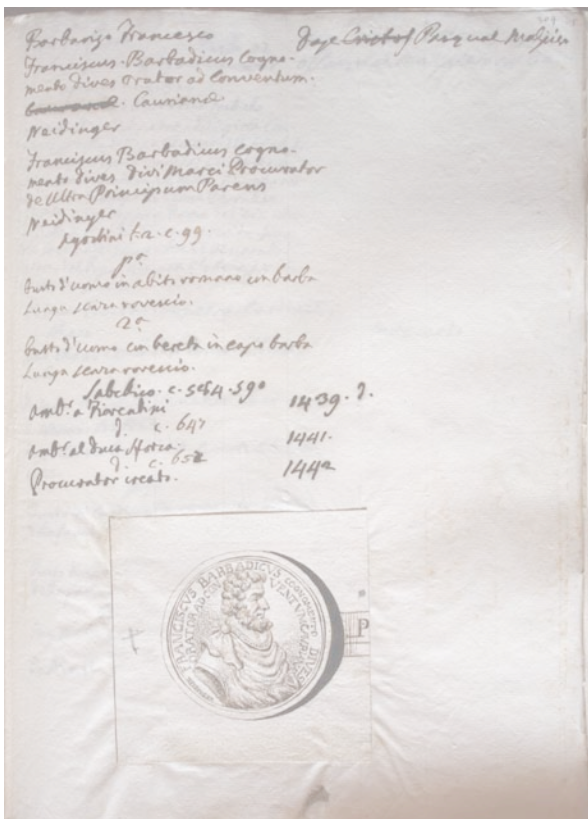 Barbarigo Francesco
Doge Pasqual Malipier
Franciscus Barbadicus Cogno-
mento dives Orator ad Conventum.
Caurianæ.
Neidinger
Franciscus Barbadicus cogno-
mento dives divi Marci Procurator
de Ultra Principum Parens
Neidinger
Agostini t. 2. c. 99.
pa
busto d'uomo in abito romano con barba
lunga senza rovescio.
2a
busto d'uomo con bereta in capo barba
lunga senza rovescio.
Sabelico. c. 590
Amb.r a Fiorentini 1439. d.
d. c. 647
Amb.r al Duca Sforza. 1441.
d. c. 652
Procurator creato. 1442
FRANCISCVS BARBADICVS COGNOMENTO DIVES
ORATOR AD CONVENTVM CAVRIANÆ
P